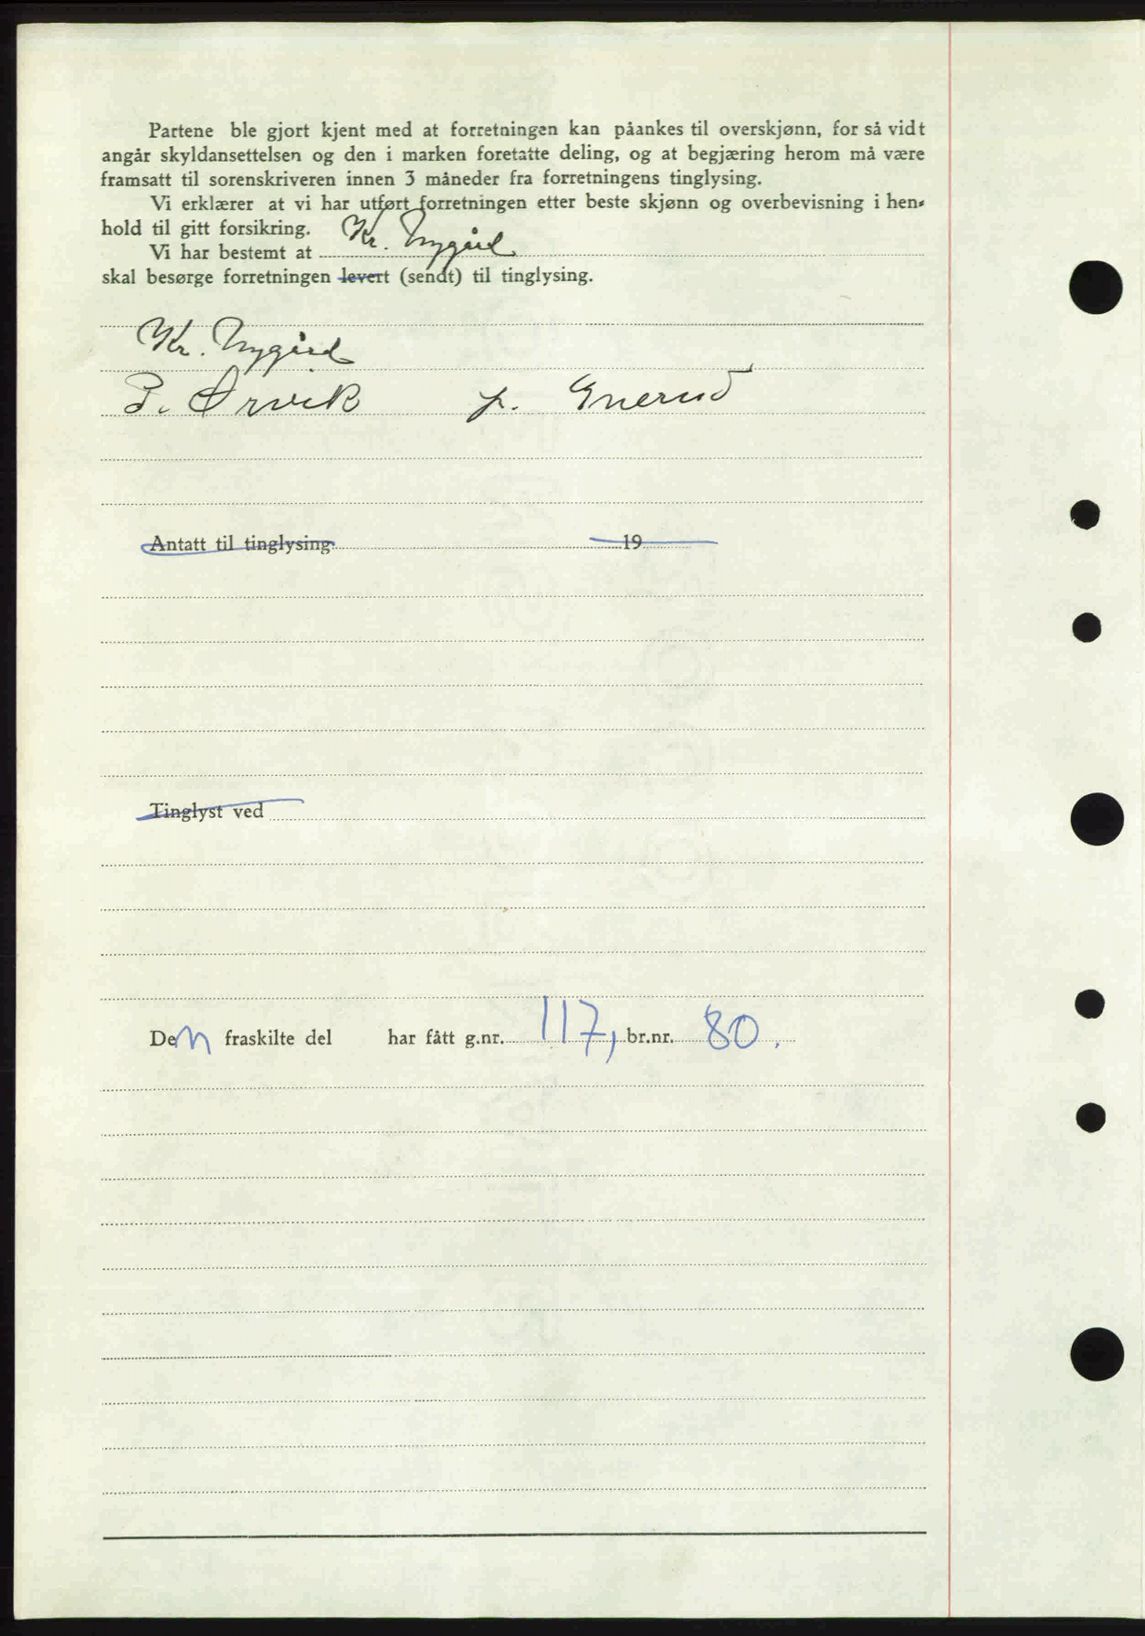 Partene ble gjort kjent med at forretningen kan påankes til overskjønn, for så vidt
angår skyldansettelsen og den i marken foretatte deling, og at begjæring herom må være
framsatt til sorenskriveren innen 3 måneder fra forretningens tinglysing.
Vi erklærer at vi har utført forretningen etter beste skjønn og overbevisning i hen-
hold til gitt forsikring.
Vi har bestemt at Kr. Nygård
skal besørge forretningen levert (sendt) til tinglysing.
Kr. Nygård
P. Ørvik
Enerud
Antatt til tinglysing 19
Tinglyst ved
Den fraskilte del har fått g.nr. 117, br.nr. 80.